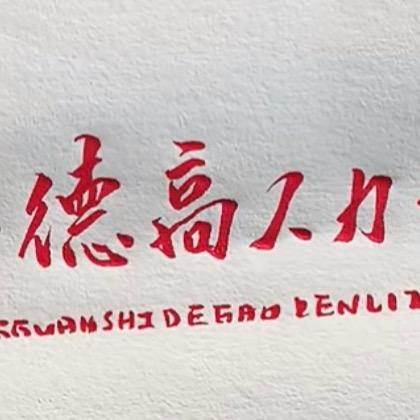 德高人力
GUANSHIDEGAO RENLIZ